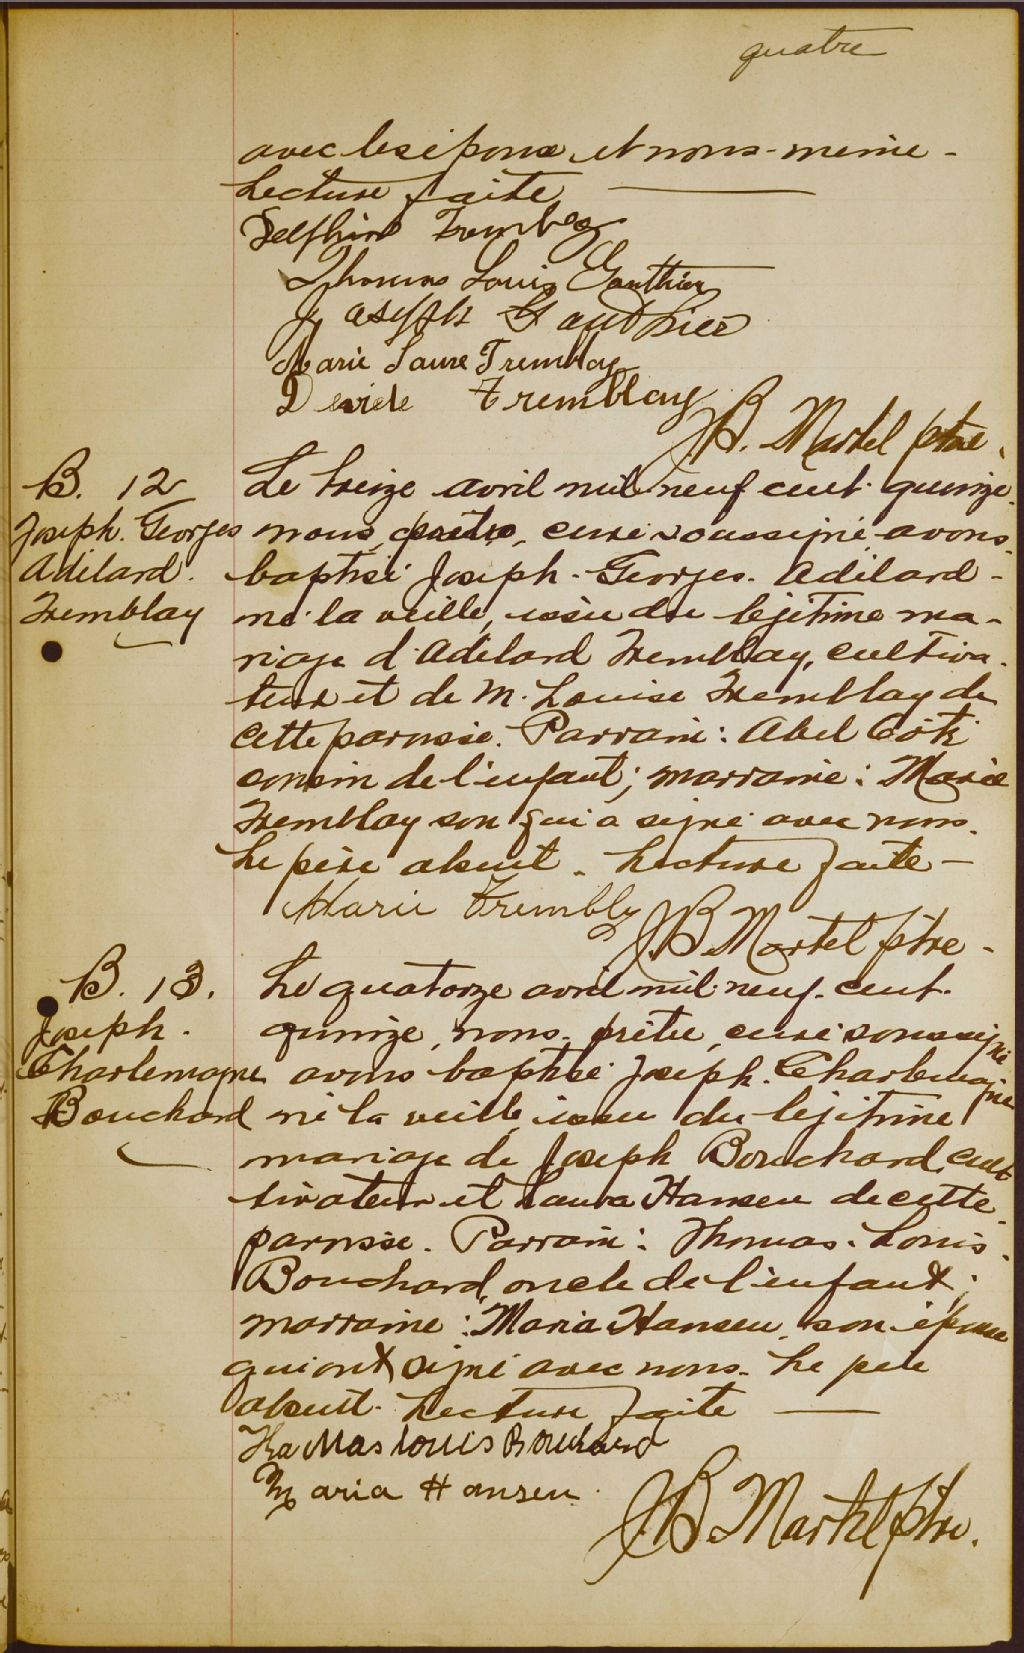 quatre
avec les époux et nous-même -
Lecture faite
Delphine Tremblay
Thomas Louis Gauthier
Joseph Gauthier
Marie Laure Tremblay
Tremblay
JB. Martel ptre.
B. 12
Joseph. Georges
Adélard.
Tremblay
Le treize avril mil neuf cent quinze
nous, prêtre, curé soussigné avons
baptisé Joseph-Georges-Adélard-
né la veille, issu du légitime ma-
riage d'Adélard Tremblay, cultiva-
teur et de M. Louise Tremblay de
cette paroisse. Parrain: Abel Côté
cousin de l'enfant; marraine: Marie
Tremblay qui a signé avec nous.
Le père absent. Lecture faite -
Marie Trembly
JB Martel ptre -
B. 13.
Joseph.
Charlemagne
Bouchard
Le quatorze avril mil-neuf-cent-
quinze, nous, prêtre, curé soussigné
avons baptisé Joseph. Charlemagne
né la veille, issu du légitime
mariage de Joseph Bouchard, cul-
tivateur et Laura Hansen de cette
paroisse. Parrain: Thomas-Louis.
Bouchard, oncle de l'enfant;
marraine: Maria Hansen, son épouse
qui ont signé avec nous. Le père
absent. Lecture faite
Thomas Louis Bouchard
Maria Hansen
JB. Martel ptre.